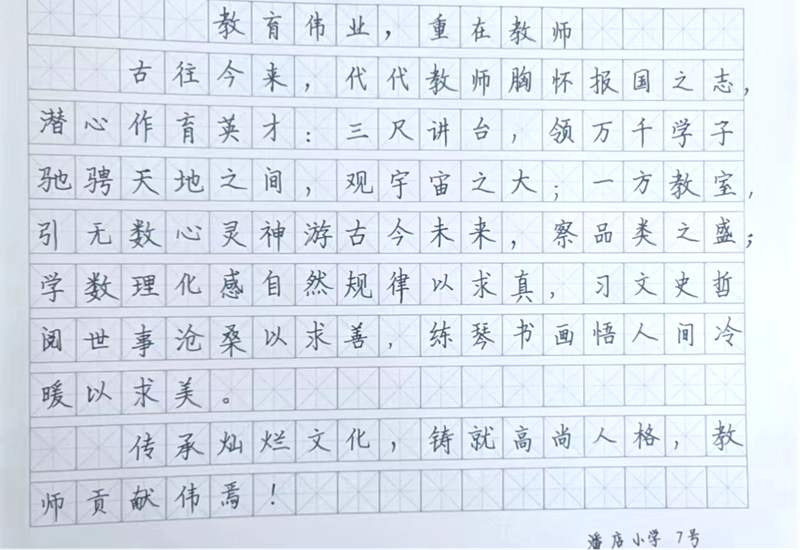 教育伟业，重在教师
古往今来，代代教师胸怀报国之志，
潜心作育英才：三尺讲台，领万千学子
驰骋天地之间，观宇宙之大；一方教室，
引无数心灵神游古今未来，察品类之盛；
学数理化感自然规律以求真，习文史哲
阅世事沧桑以求善，练琴书画悟人间冷
暖以求美。
传承灿烂文化，铸就高尚人格，教
师贡献伟焉！
潘店小学 7号